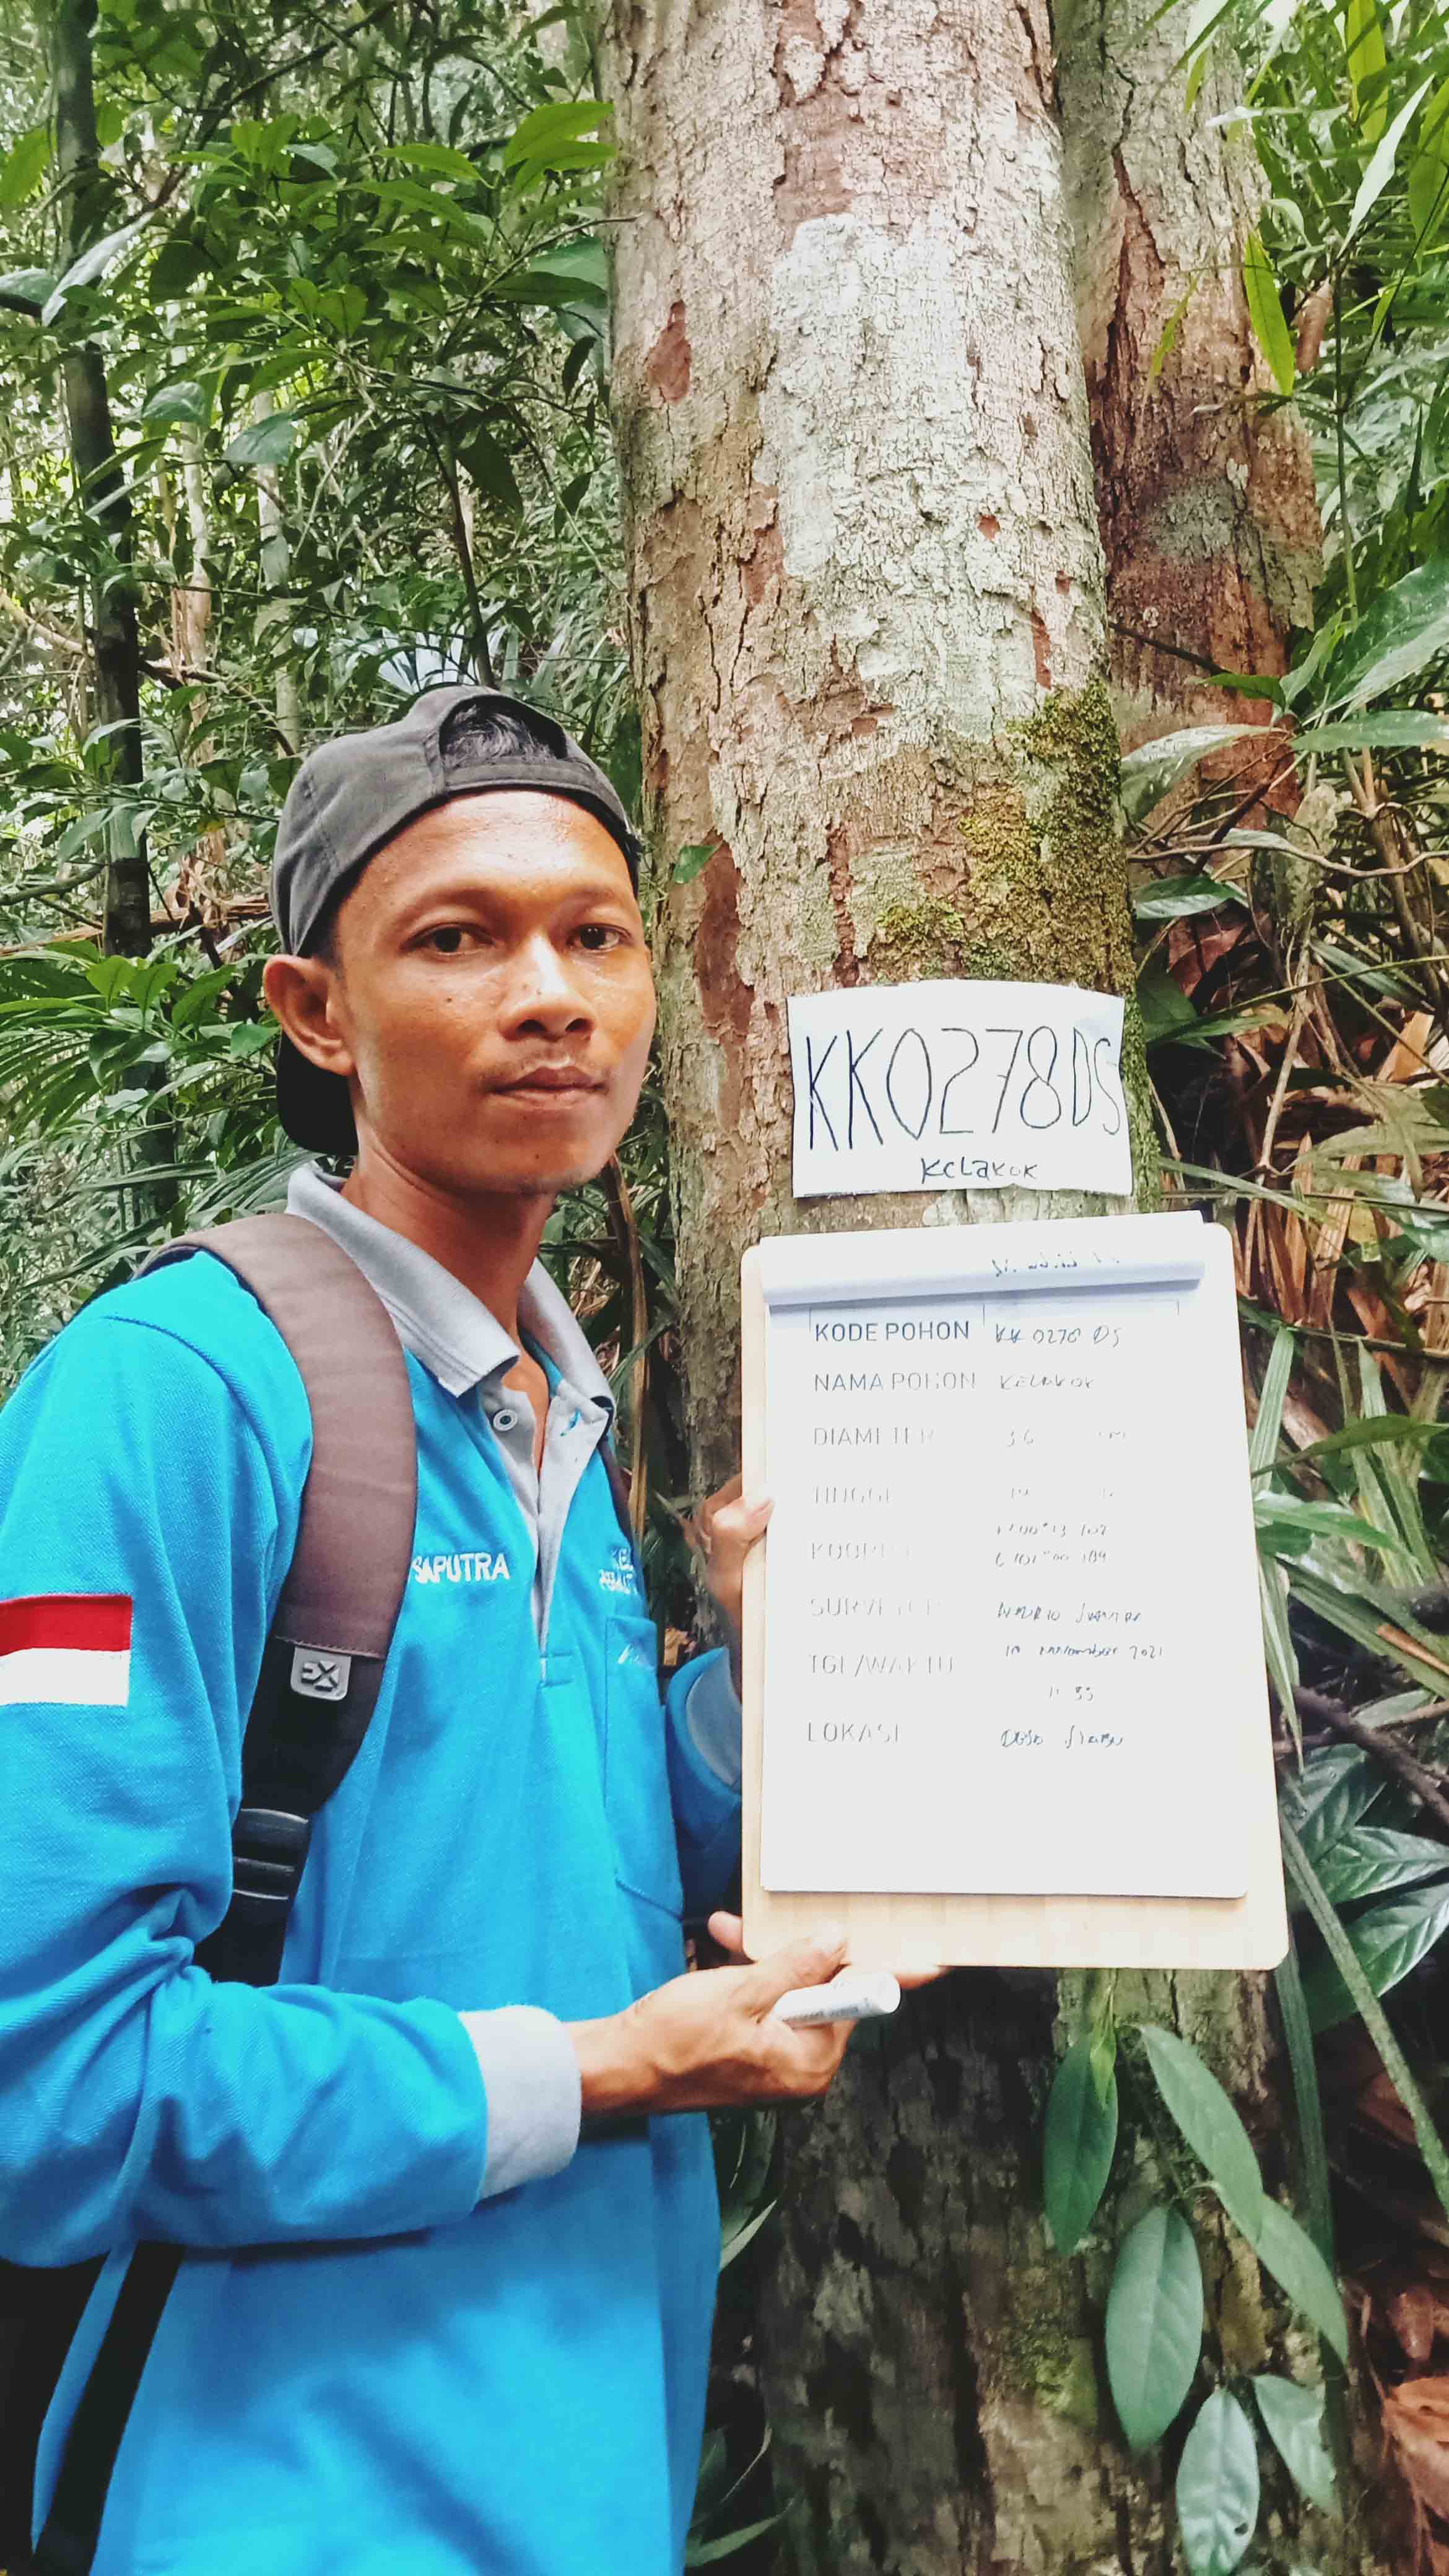 KK0278DS
KeLaKoK
KODE POHON KK 0278 DS
NAMA POHON KELAKOK
DIAMETER 36 cm
TINGGI 19
KOORD
SURVEYOR
TGL/WAKTU 10 november 2021
11 33
LOKASI DESA
SAPUTRA
EX